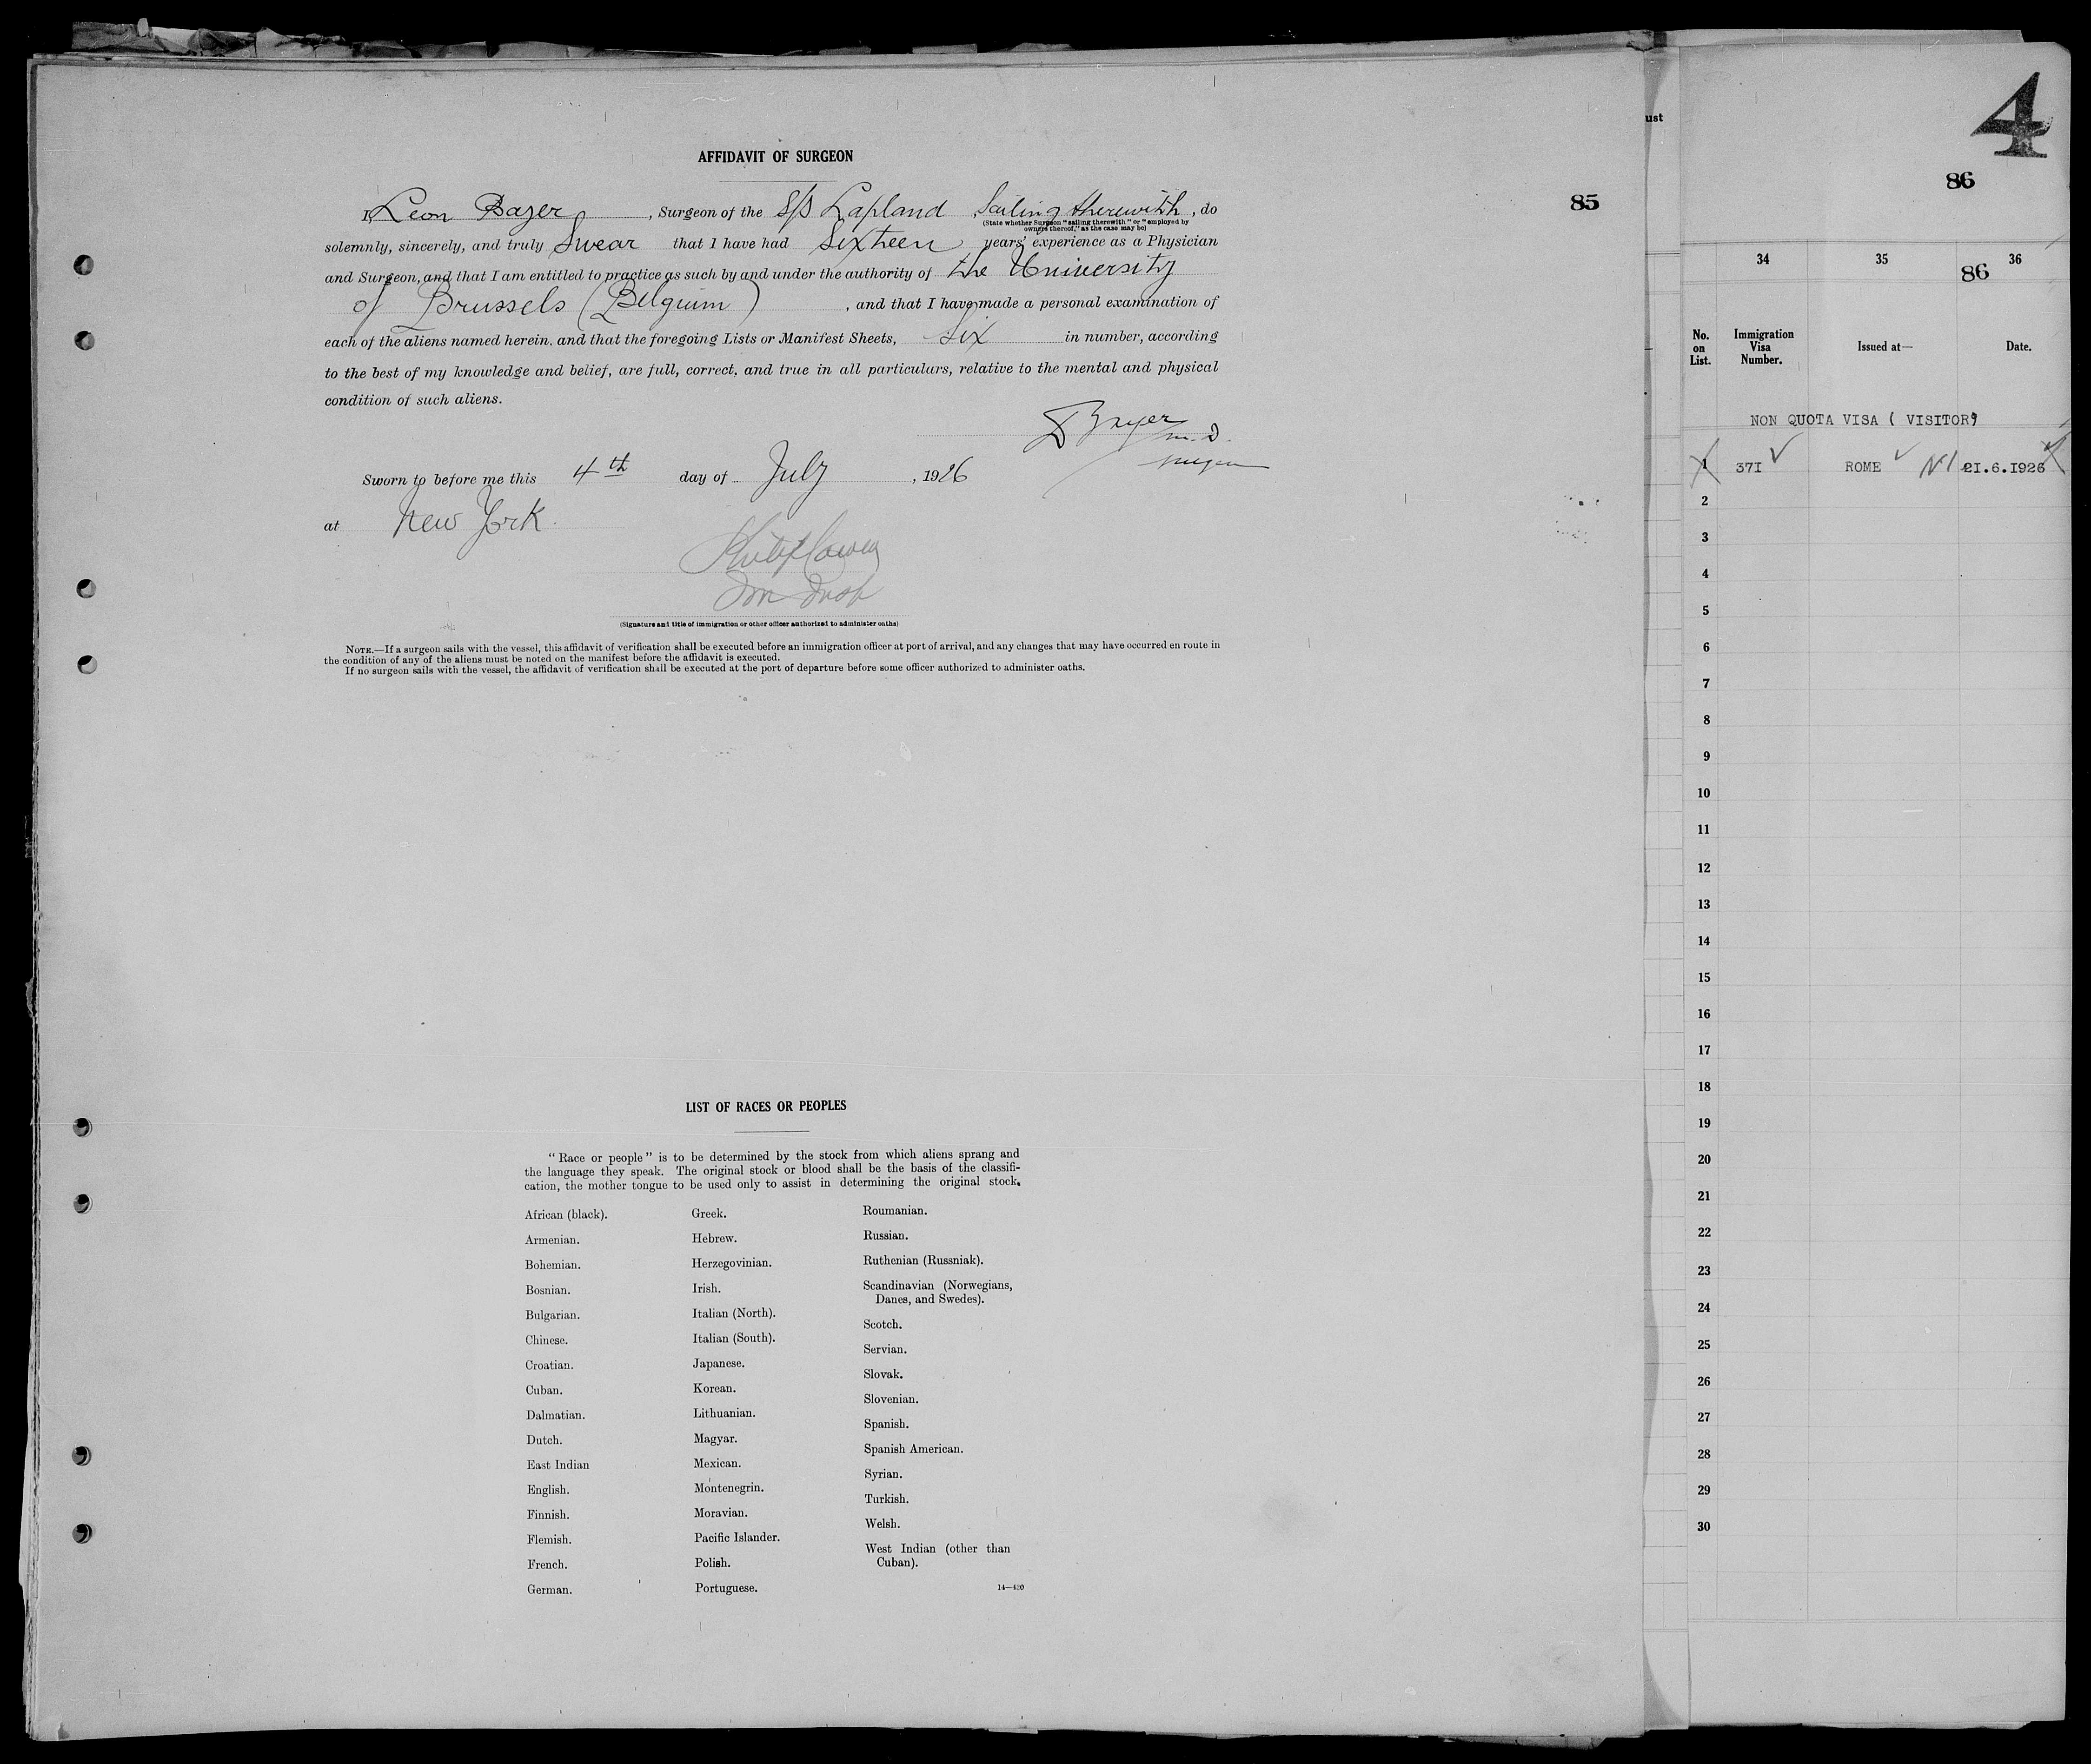 AFFIDAVIT OF SURGEON
I, Leon Bayer, Surgeon of the S/S Lapland Sailing therewith, do
(State whether Surgeon "sailing therewith" or "employed by
owners thereof," as the case may be)
solemnly, sincerely, and truly Swear that I have had Sixteen years' experience as a Physician
and Surgeon, and that I am entitled to practice as such by and under the authority of the University
of Brussels (Belgium), and that I have made a personal examination of
each of the aliens named herein. and that the foregoing Lists or Manifest Sheets, Six in number, according
to the best of my knowledge and belief, are full, correct, and true in all particulars, relative to the mental and physical
condition of such aliens.
Bayer
M.D.
Surgeon
Sworn to before me this 4th day of July, 1926
at New York.
(Signature and title of immigration or other officer authorized to administer oaths)
NOTE.—If a surgeon sails with the vessel, this affidavit of verification shall be executed before an immigration officer at port of arrival, and any changes that may have occurred en route in
the condition of any of the aliens must be noted on the manifest before the affidavit is executed.
If no surgeon sails with the vessel, the affidavit of verification shall be executed at the port of departure before some officer authorized to administer oaths.
85
LIST OF RACES OR PEOPLES
"Race or people" is to be determined by the stock from which aliens sprang and
the language they speak. The original stock or blood shall be the basis of the classifi-
cation, the mother tongue to be used only to assist in determining the original stock.
African (black).
Armenian.
Bohemian.
Bosnian.
Bulgarian.
Chinese.
Croatian.
Cuban.
Dalmatian.
Dutch.
East Indian
English.
Finnish.
Flemish.
French.
German.
Greek.
Hebrew.
Herzegovinian.
Irish.
Italian (North).
Italian (South).
Japanese.
Korean.
Lithuanian.
Magyar.
Mexican.
Montenegrin.
Moravian.
Pacific Islander.
Polish.
Portuguese.
Roumanian.
Russian.
Ruthenian (Russniak).
Scandinavian (Norwegians,
Danes, and Swedes).
Scotch.
Servian.
Slovak.
Slovenian.
Spanish.
Spanish American.
Syrian.
Turkish.
Welsh.
West Indian (other than
Cuban).
14—430
ust
4
86
34 35 36
86
No.
on
List.
Immigration
Visa
Number.
Issued at—
Date.
NON QUOTA VISA ( VISITOR)
1 37I ROME 21.6.1926
2
3
4
5
6
7
8
9
10
11
12
13
14
15
16
17
18
19
20
21
22
23
24
25
26
27
28
29
30